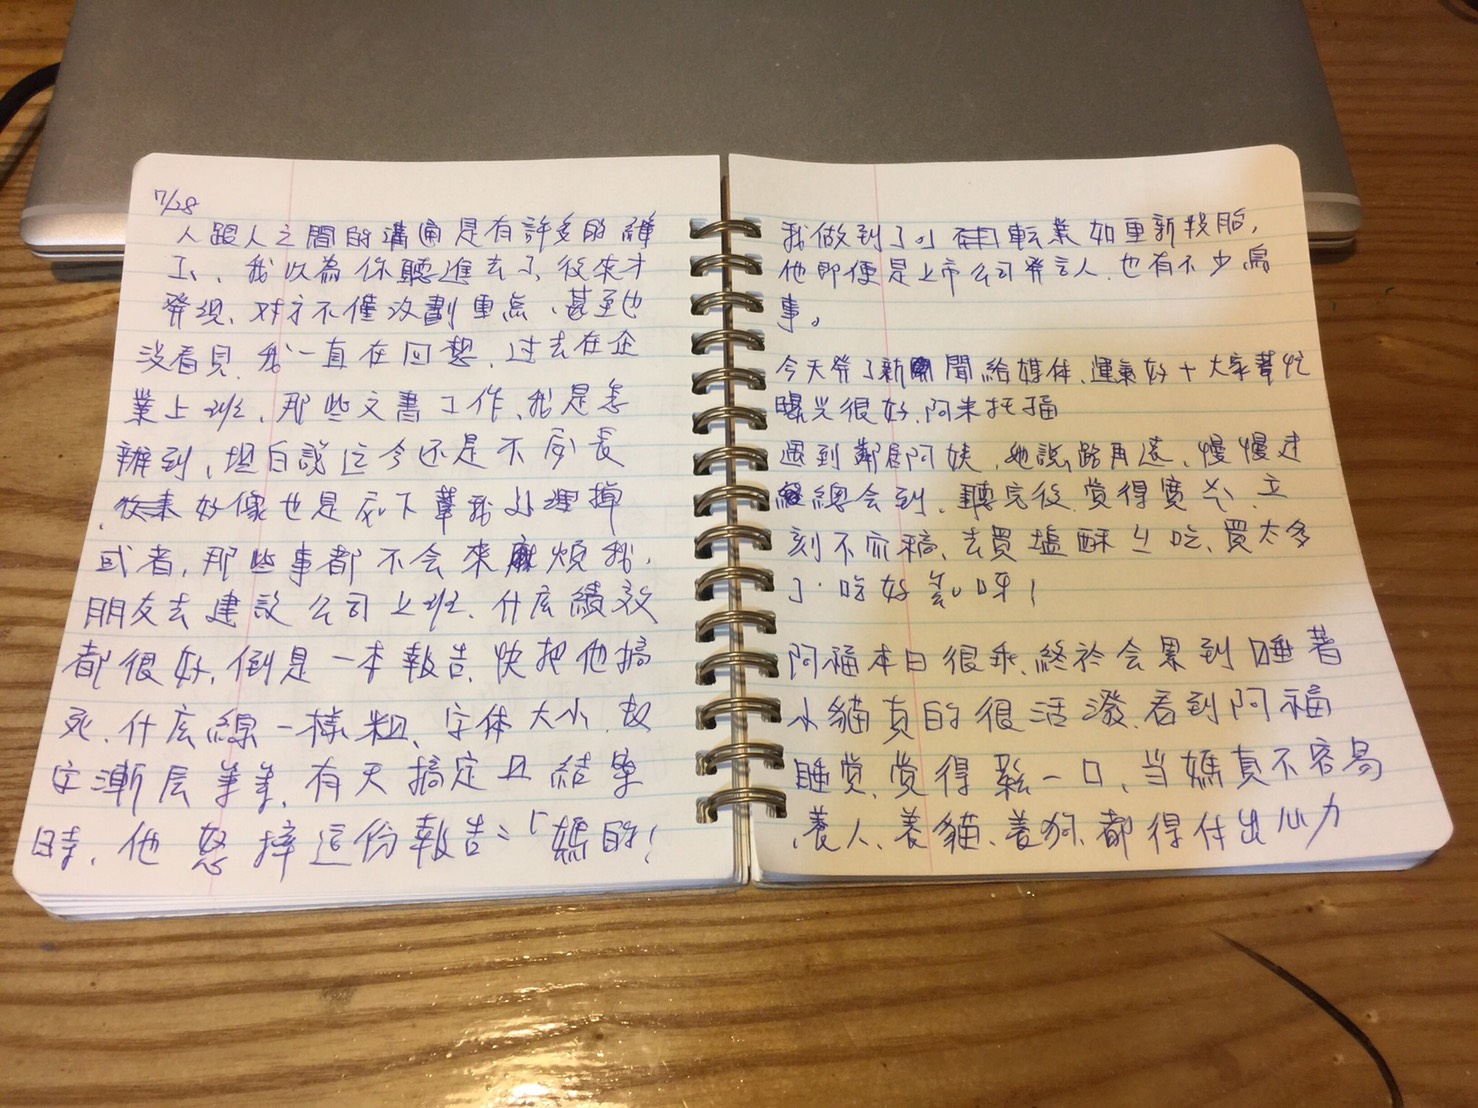 7/28
人跟人之間的溝通是有許多的確
工、我以為你聽進去了,後來才
發現、对方不僅沒劃重点、甚至也
沒看見,我一直在回想,过去在企
業上班、那些文書工作、我是怎
辦到,坦白說迄今还是不擅長
好像也是底下幫我处理掉
或者,那些事都不会來麻煩我,
朋友去建設公司上班、什麼績效
都很好,倒是一本報告,快把他搞
死,什麼線一樣粗、字体大小、數
字漸层等等,有天搞定且結案
時,他怒摔這份報告:「媽的!
我做到了」轉業如重新投胎,
他即便是上市公司發言人,也有不少鳥
事。
今天發了新聞給媒体,運氣好+大家幫忙
曝光很好,阿米托福
遇到鄰居阿妹,她說,路再遠、慢慢过
總会到,聽完後,覚得寬心、立
刻不在稿,去買塩酥ㄐ吃、買太多
了,吃好飽呀!
阿福本日很乖,終於会累到睡著
小貓真的很活潑,看到阿福
睡覚,覚得鬆一口,当媽真不容易
,養人、養貓、養狗,都得付出心力